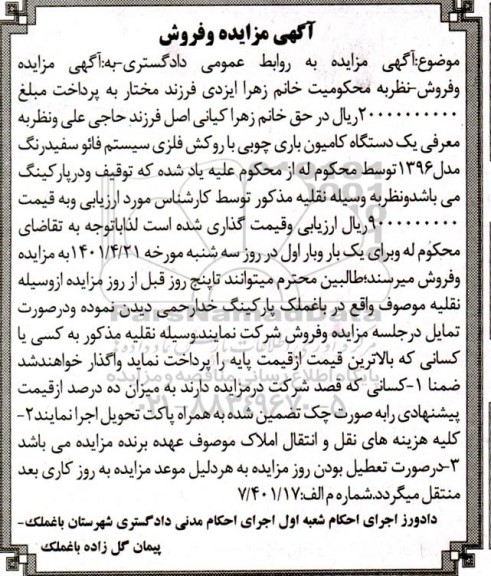 آگهی مزایده وفروش
موضوع:آگهی مزایده به روابط عمومی دادگستری-به:آگهی مزایده
وفروش-نظربه محکومیت خانم زهرا ایزدی فرزند مختار به پرداخت مبلغ
۲۰۰۰۰۰۰۰۰۰۰ریال در حق خانم زهرا کیانی اصل فرزند حاجی علی ونظربه
معرفی یک دستگاه کامیون باری چوبی با روکش فلزی سیستم فائو سفیدرنگ
مدل۱۳۹۶توسط محکوم له از محکوم علیه یاد شده که توقیف ودرپارکینگ
می باشدونظربه وسیله نقلیه مذکور توسط کارشناس مورد ارزیابی وبه قیمت
۹۰۰۰۰۰۰۰۰۰۰ریال ارزیابی وقیمت گذاری شده است لذاباتوجه به تقاضای
محکوم له وبرای یک بار وبار اول در روز سه شنبه مورخه ۱۴۰۱/۴/۲۱به مزایده
وفروش میرسند؛طالبین محترم میتوانند تاپنج روز قبل از روز مزایده ازوسیله
نقلیه موصوف واقع در باغملک پارکینگ خدارحمی دیدن نموده ودرصورت
تمایل درجلسه مزایده وفروش شرکت نمایند.وسیله نقلیه مذکور به کسی یا
کسانی که بالاترین قیمت ازقیمت پایه را پرداخت نماید واگذار خواهندشد
ضمنا ۱-کسانی که قصد شرکت درمزایده دارند به میزان ده درصد ازقیمت
پیشنهادی رابه صورت چک تضمین شده به همراه پاکت تحویل اجرا نمایند۲-
کلیه هزینه های نقل و انتقال املاک موصوف عهده برنده مزایده می باشد
۳-درصورت تعطیل بودن روز مزایده به هردلیل موعد مزایده به روز کاری بعد
منتقل میگردد.شماره م الف:۷/۴۰۱/۱۷
دادورز اجرای احکام شعبه اول اجرای احکام مدنی دادگستری شهرستان باغملک-
پیمان گل زاده باغملک
ParsNamadData
پایگاه اطلاع رسانی مناقصه ومزایده
۰۲۱-۸۸۳۴۹۶۷۰-۵